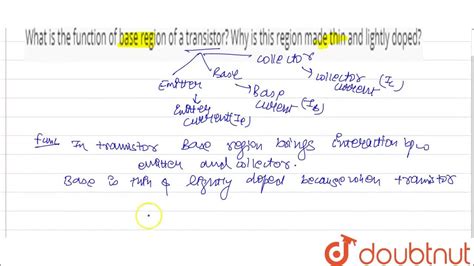 What is the function of base region of a transistor? Why is this region made thin and lightly doped?
collector
Base
Emitter
collector current (Ic)
Base current (IB)
Emitter current (IE)
func In transistor Base region brings interaction b/w
emitter and collector.
Base is thin & lightly doped because when transistor
doubtnut